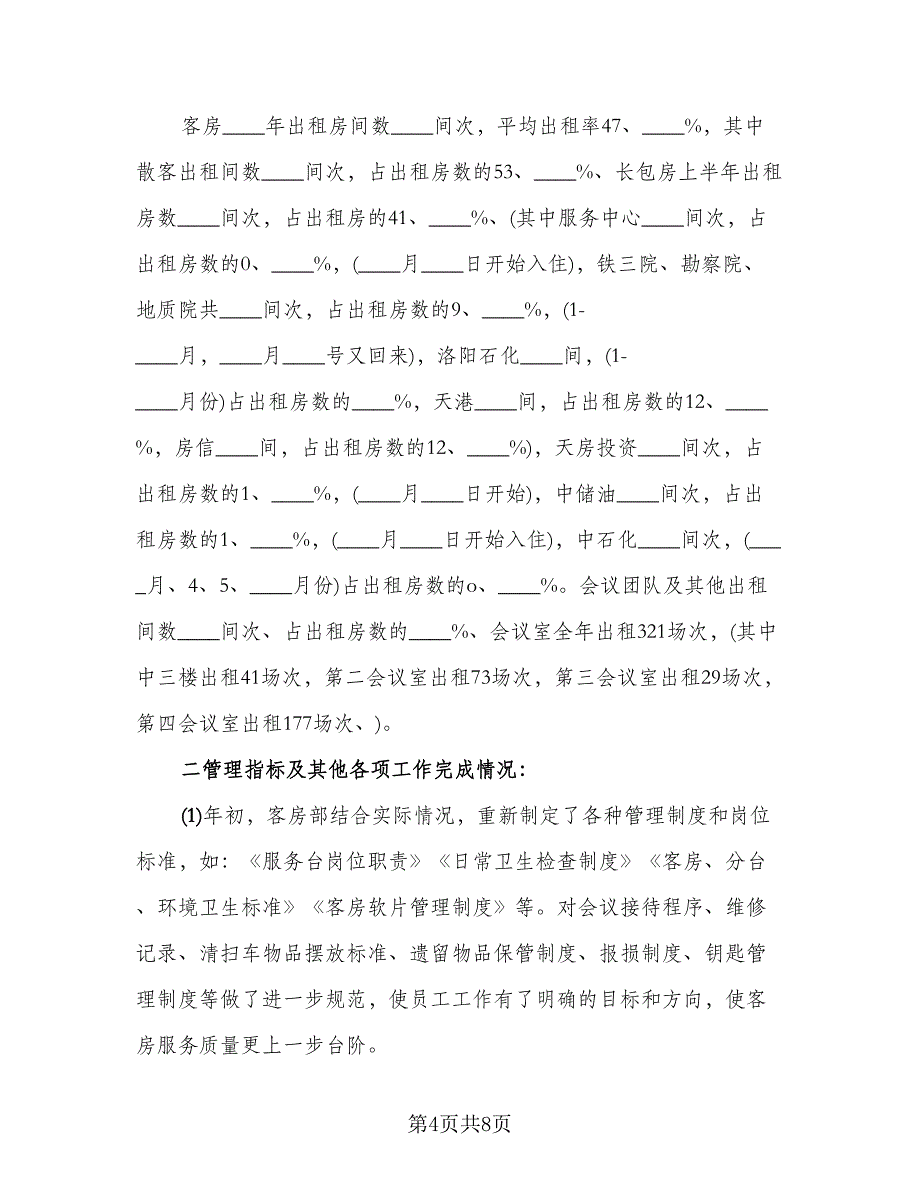 客房____年出租房间数____间次，平均出租率47、____%，其中
散客出租间数____间次，占出租房数的53、____%、长包房上半年出租
房数____间次，占出租房的41、____%、(其中服务中心____间次，占
出租房数的0、____%，(____月____日开始入住)，铁三院、勘察院、
地质院共____间次，占出租房数的9、____%，(1-
____月，____月____号又回来)，洛阳石化____间，(1-
____月份)占出租房数的____%，天港____间，占出租房数的12、____
%，房信____间，占出租房数的12、____%)，天房投资____间次，占
出租房数的1、____%，(____月____日开始)，中储油____间次，占出
租房数的1、____%，(____月____日开始入住)，中石化____间次，(___
_月、4、5、____月份)占出租房数的o、____%。会议团队及其他出租
间数____间次、占出租房数的____%、会议室全年出租321场次，(其中
中三楼出租41场次，第二会议室出租73场次，第三会议室出租29场次，
第四会议室出租177场次、)。
二管理指标及其他各项工作完成情况：
(1)年初，客房部结合实际情况，重新制定了各种管理制度和岗位
标准，如：《服务台岗位职责》《日常卫生检查制度》《客房、分台
、环境卫生标准》《客房软片管理制度》等。对会议接待程序、维修
记录、清扫车物品摆放标准、遗留物品保管制度、报损制度、钥匙管
理制度等做了进一步规范，使员工工作有了明确的目标和方向，使客
房服务质量更上一步台阶。
第4页共8页